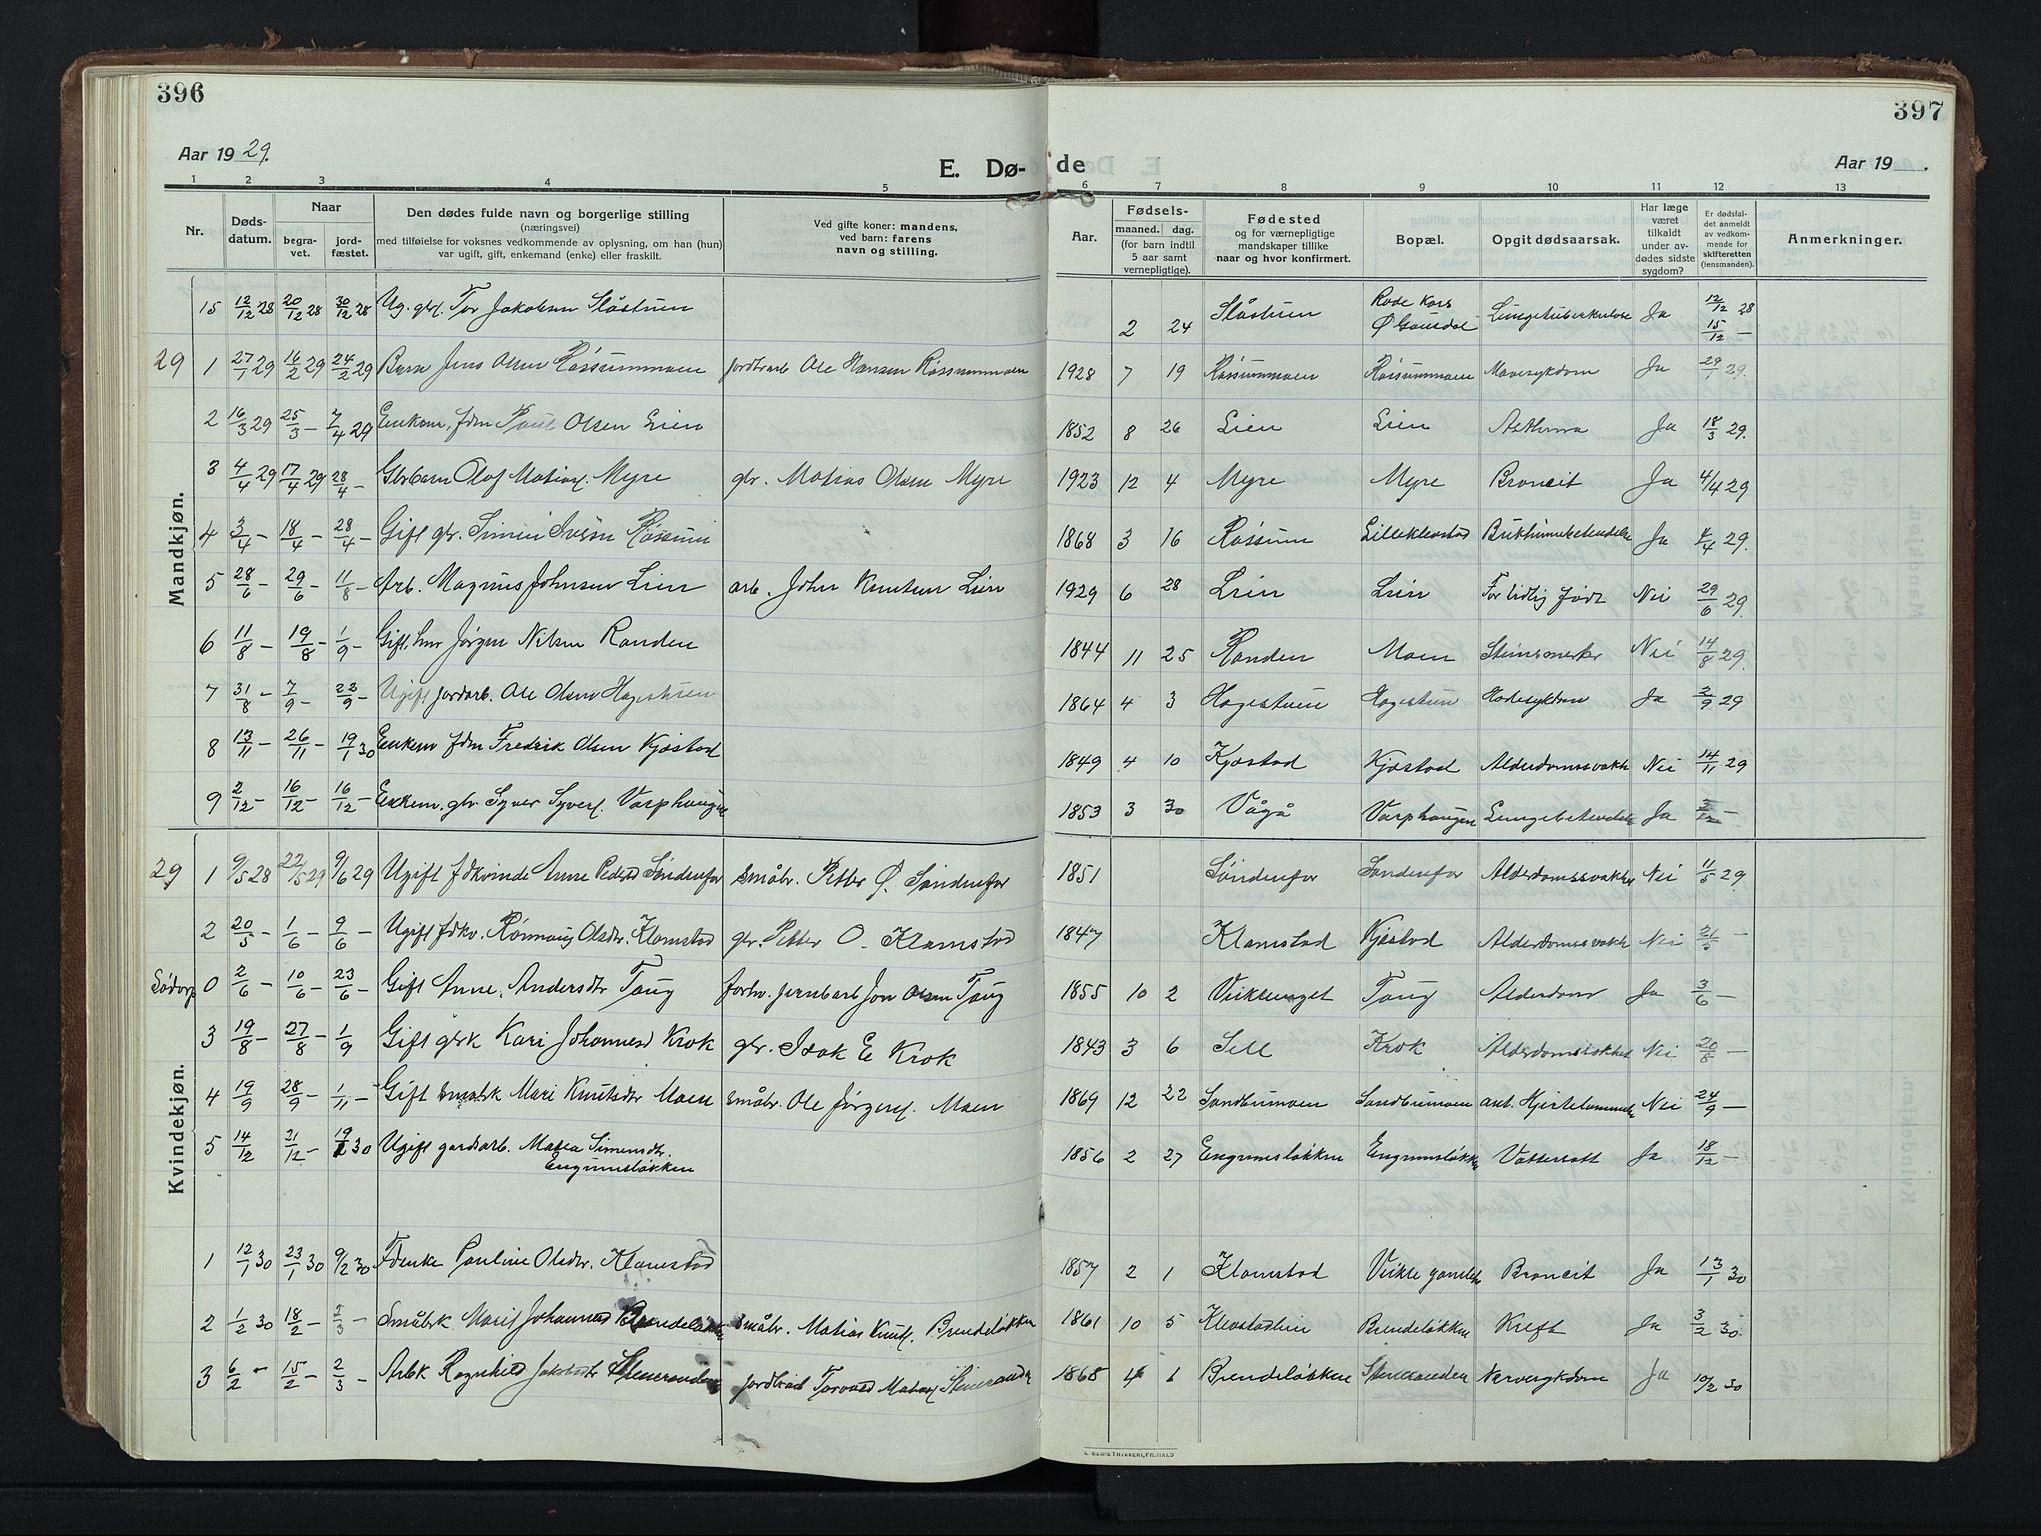 396
397
Aar 19 29.
E. Dø-
de
Aar 19 .
1 2 3 4 5 6 7 8 9 10 11 12 13
Nr.
Døds-
datum.
Naar
begra-
vet.
jord-
fæstet.
Den dødes fulde navn og borgerlige stilling
(næringsvei)
med tilføielse for voksnes vedkommende av oplysning, om han (hun)
var ugift, gift, enkemand (enke) eller fraskilt.
Ved gifte koner: mandens,
ved barn: farens
navn og stilling.
Aar.
Fødsels-
maaned. dag.
(for barn indtil
5 aar samt
vernepligtige).
Fødested
og for værnepligtige
mandskaper tillike
naar og hvor konfirmert.
Bopæl.
Opgit dødsaarsak.
Har læge
været
tilkaldt
under av-
dødes sidste
sygdom?
Er dødsfal-
det anmeldt
av vedkom-
mende for
skifteretten
(lensmanden).
Anmerkninger.
Mandkjøn.
15 12/12 28 20/12 28 30/12 28 Ug. gbr. Tor Jakobsen Slåstuen 2 24 Slåstuen Røde Kors Ø Gausdal Lungetuberkulose Ja 12/12 28 15/12 –
29 1 27/1 29 16/2 29 24/2 29 Barn Jens Olsen Røssummoen jordbrarb Ole Hansen Røssummoen 1928 7 19 Røssummoen Røssummoen Mavesykdom Ja 29/1 29.
2 16/3 29 25/3 – 7/4 29 Enkem. fdm Paul Olsen Lien 1852 8 26 Lien Lien Asthma Ja 18/3 29.
3 4/4 29 17/4 29 28/4 – Gbrbarn Olof Matias. Myre gbr. Matias Olsen Myre 1923 12 4 Myre Myre Broncit Ja 4/4 29
4 3/4 – 18/4 – 28/4 – Gift gbr. Simen Iversn Røssum 1868 3 16 Røssum Lilleklevstad Bukhinnebetendelse Ja 4/4 29.
5 28/6 – 29/6 – 11/8 – Arb. Magnus Johnsen Lien arb. John Knutsen Lien 1929 6 28 Lien Lien For tidlig født Nei 29/6 29.
6 11/8 – 19/8 – 1/9 – Gift. Jørgen Nilsen Randen 1844 11 25 Randen Moen Stensmerter Nei 14/8 29.
7 31/8 – 7/9 – 22/9 – Ugift jordarb. Ole Olsen Hagestuen 1864 4 3 Hagestuen Hagestuen Hodesykdom Ja 2/9 29
8 13/11 – 26/11 – 19/1 30 Enkem fdm Fredrik Olsen Kjøstad 1849 4 10 Kjøstad Kjøstad Alderdomssvakh Nei 14/11 29
9 2/12 – 16/12 – 16/12 – Enkem. gbr. Syver Syvers. Varphaugen 1853 3 30 Vågå Varphaugen Lungebetendelse Ja 3/12 –
Kvindekjøn.
29 1 9/5 28 22/5 29 9/6 29 Ugift fdkvinde Anne Pedersd Søndenfor småbr. Petter Ø. Søndenfor 1851 Søndenfor Søndenfor Alderdomssvakhet Nei 11/5 29
2 20/5 – 1/6 – 9/6 – Ugift fdkv. Rønnaug Olsdtr. Klomstad gbr. Petter O. Klomstad 1847 Klomstad Kjøstad Alderdomssvakh Nei 21/5 –
Sødorp 0 2/6 – 10/6 – 23/6 – Gift Anne Andersdtr Taug forhv. jernbarb Jon Olsen Taug 1855 10 2 Taug Alderdom Ja 3/6 –
3 19/8 – 27/8 – 1/9 Gift gbrk Kari Johannesd Krok gbr. Isak E Krok 1843 3 6 Sell Krok Alderdomssvakhet Nei 20/8 –
4 19/9 28/9 – 1/11 – Gift småbk Mari Knutsdtr Moen småbr. Ole Jørgens. Moen 1869 12 22 Sandbumoen Sandbumoen ant. Hjertelammelse Nei 24/9 –
5 14/12 21/12 – 19/1 30 Ugift gardsarb. Matea Simensdtr. Engumsløkken 1856 2 27 Engumsløkken Engumsløkken Vattersott Ja 18/12 –
1 12/1 30 23/1 30 9/2 30 Fdenke Pauline Olsdtr. Klomstad 1857 2 1 Klomstad Vikle gamleh Broncit Ja 13/1 30
2 1/2 30 18/2 – 2/3 – Småbk Marit Johannesd Brendeløkken småbr. Matias Knuts. Brendeløkken 1861 10 5 Klevstadlien Brendeløkken Kreft Ja 3/2 30.
3 6/2 – 15/2 – 2/3 – Arbk Ragnhild Jakobsdtr Steneranden jordbrarb Torvald Matias. Steneranden 1868 4 1 Brendeløkken Steneranden Nervesykdom Ja 10/2 30